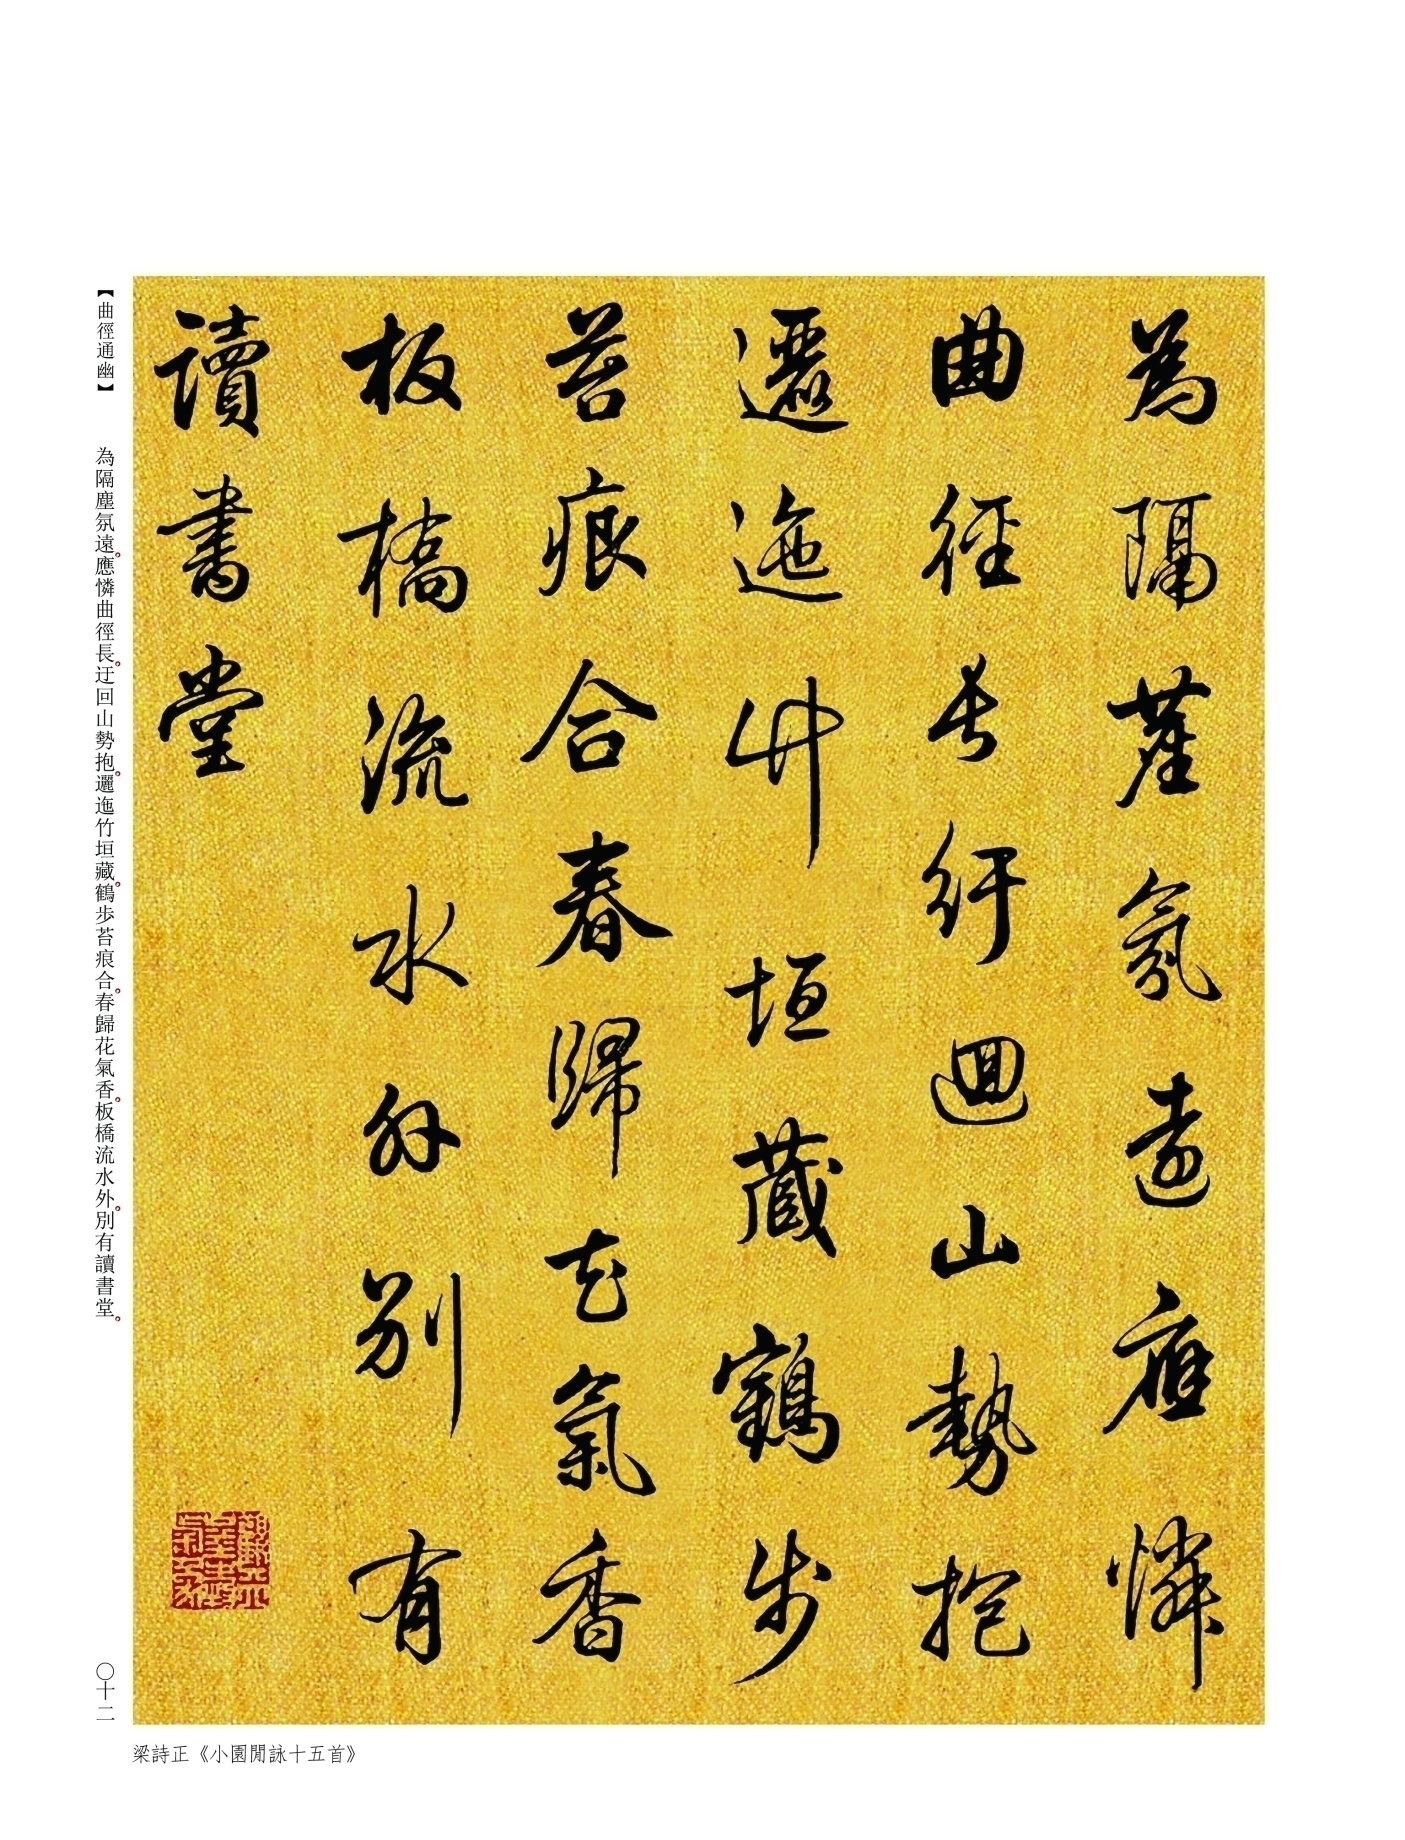 為隔塵氛遠應憐
曲徑長紆迴山勢抱
邐迤竹垣藏鶴步
苔痕合春歸花氣香
板橋流水外別有
讀書堂
【曲徑通幽】 為隔塵氛遠。應憐曲徑長。迂回山勢抱。邐迤竹垣藏。鶴步苔痕合。春歸花氣香。板橋流水外。別有讀書堂。
〇十二
梁詩正《小園閒詠十五首》